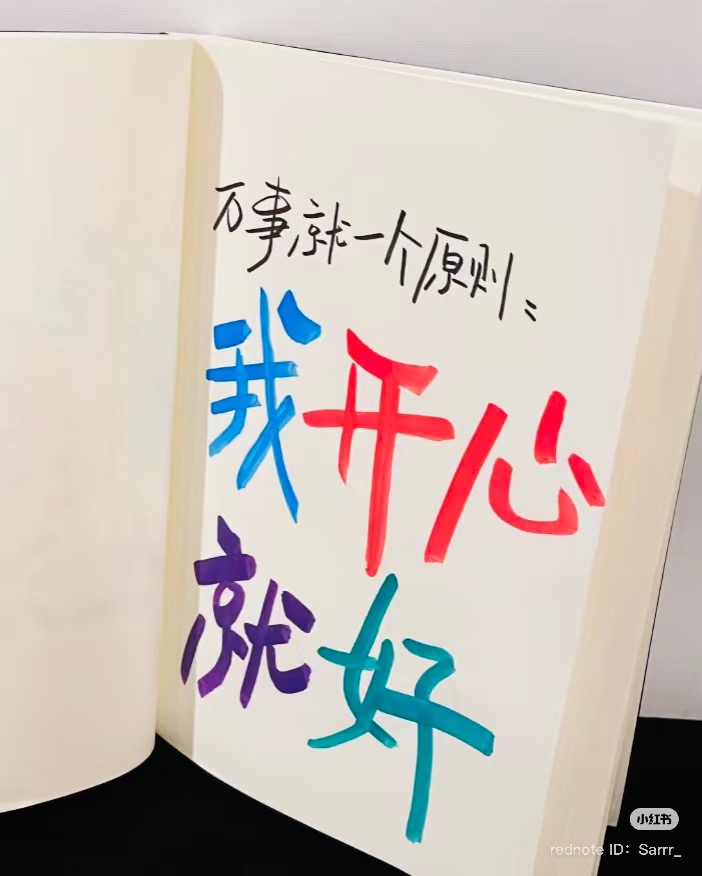 万事就一个原则：
我开心
就好
小红书
rednote ID: Sarrr_